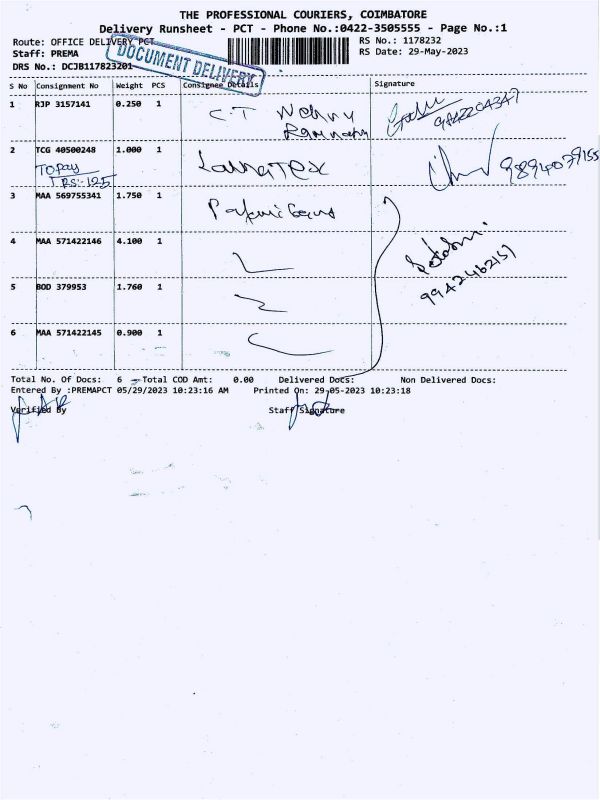 THE PROFESSIONAL COURIERS, COIMBATORE
Delivery Runsheet - PCT - Phone No.:0422-3505555 - Page No.:1
Route: OFFICE DELIVERY PCT
RS No.: 1178232
Staff: PREMA
RS Date: 29-May-2023
DRS No.: DCJB117823201
DOCUMENT DELIVERY
S No Consignment No Weight PCS Consignee Details Signature
1 RJP 3157141 0.250 1 C.T
9842204347
2 TCG 40500248 1.000 1
TOPay
RS:-125
9894079155
3 MAA 569755341 1.750 1
4 MAA 571422146 4.100 1
9942462151
5 BOD 379953 1.760 1
6 MAA 571422145 0.900 1
Total No. Of Docs: 6 Total COD Amt: 0.00 Delivered Docs: Non Delivered Docs:
Entered By :PREMAPCT 05/29/2023 10:23:16 AM Printed On: 29-05-2023 10:23:18
Verified By Staff Signature